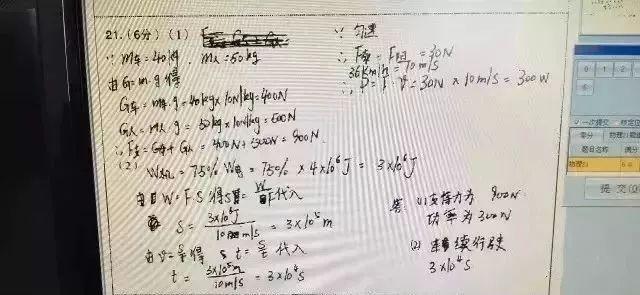 21.(6分) (1)
∵ m车=40kg, m人=50kg
由G=m·g得
G车=m车·g=40kg×10N/kg=400N
G人=m人·g=50kg×10N/kg=500N
∴ F支=G车+G人=400N+500N=900N
(2)
W机=75% W电=75%×4×10⁶J=3×10⁶J
W=F·S得S=
代入
S=
=3×10⁵m
得
t=
代入
t=3×10⁵m/10m/s=3×10⁴s
∵ 匀速
∴ F牵=F阻=30N
36km/h=10m/s
∴ P=F·V=30N×10m/s=300W
答: (1)支持力为 900N
功率为300W
(2)
续行驶
3×10⁴s
一次提交
题目名称
物理21
提交